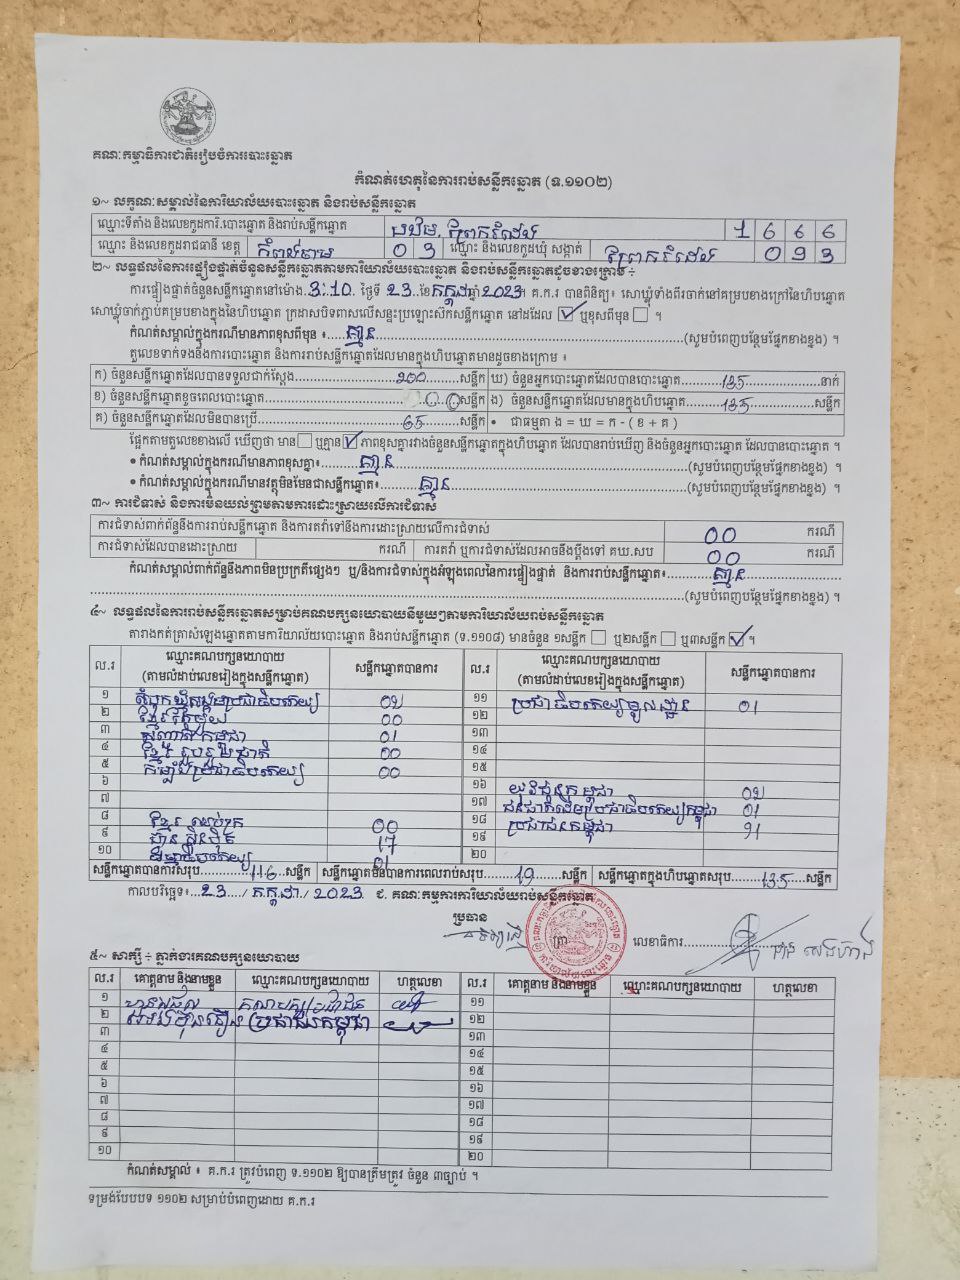 គណៈកម្មាធិការជាតិរៀបចំការបោះឆ្នោត
កំណត់ហេតុនៃការរាប់សន្លឹកឆ្នោត (ទ.១១០២)
១~ លក្ខណៈសម្គាល់នៃការិយាល័យបោះឆ្នោត និងរាប់សន្លឹកឆ្នោត
ឈ្មោះទីតាំង និងលេខកូដការិ.បោះឆ្នោត និងរាប់សន្លឹកឆ្នោត
ឈ្មោះ និងលេខកូដរាជធានី ខេត្ត កំពង់ចាម 0 3 ឈ្មោះ និងលេខកូដឃុំ សង្កាត់
២~ លទ្ធផលនៃការផ្ទៀងផ្ទាត់ចំនួនសន្លឹកឆ្នោតតាមការិយាល័យបោះឆ្នោត និងរាប់សន្លឹកឆ្នោតដូចខាងក្រោម ÷
ការផ្ទៀងផ្ទាត់ចំនួនសន្លឹកឆ្នោតនៅម៉ោង 3:10 ថ្ងៃទី 23 ខែ កក្កដា ឆ្នាំ 2023។ គ.ក.រ បានពិនិត្យ៖ សោឃ្មុំទាំងពីរចាក់នៅគម្របខាងក្រៅនៃហិបឆ្នោត
សោឃ្មុំចាក់ភ្ជាប់គម្របខាងក្នុងនៃហិបឆ្នោត ក្រដាសបិទពាសលើសន្ទះប្រឡោះសិកសន្លឹកឆ្នោត នៅដដែល ឬខុសពីមុន ។
កំណត់សម្គាល់ក្នុងករណីមានភាពខុសពីមុន ៖ គ្មាន (សូមបំពេញបន្ថែមផ្នែកខាងខ្នង) ។
តួលេខទាក់ទងនឹងការបោះឆ្នោត និងការរាប់សន្លឹកឆ្នោតដែលមានក្នុងហិបឆ្នោតមានដូចខាងក្រោម ៖
ក) ចំនួនសន្លឹកឆ្នោតដែលបានទទួលជាក់ស្តែង 200 សន្លឹក ឃ) ចំនួនអ្នកបោះឆ្នោតដែលបានបោះឆ្នោត 135 នាក់
ខ) ចំនួនសន្លឹកឆ្នោតខូចពេលបោះឆ្នោត 00 សន្លឹក ង) ចំនួនសន្លឹកឆ្នោតដែលមានក្នុងហិបឆ្នោត 135 សន្លឹក
គ) ចំនួនសន្លឹកឆ្នោតដែលមិនបានប្រើ 65 សន្លឹក • ជាធម្មតា ង = ឃ = ក - ( ខ + គ )
ផ្អែកតាមតួលេខខាងលើ ឃើញថា មាន ឬគ្មាន ភាពខុសគ្នារវាងចំនួនសន្លឹកឆ្នោតក្នុងហិបឆ្នោត ដែលបានរាប់ឃើញ និងចំនួនអ្នកបោះឆ្នោត ដែលបានបោះឆ្នោត ។
• កំណត់សម្គាល់ក្នុងករណីមានភាពខុសគ្នា៖ គ្មាន (សូមបំពេញបន្ថែមផ្នែកខាងខ្នង) ។
• កំណត់សម្គាល់ក្នុងករណីមានវត្ថុមិនមែនជាសន្លឹកឆ្នោត៖ គ្មាន (សូមបំពេញបន្ថែមផ្នែកខាងខ្នង) ។
៣~ ការជំទាស់ និងការមិនយល់ព្រមតាមការដោះស្រាយលើការជំទាស់
ការជំទាស់ពាក់ព័ន្ធនឹងការរាប់សន្លឹកឆ្នោត និងការតវ៉ាទៅនឹងការដោះស្រាយលើការជំទាស់ 00 ករណី
ការជំទាស់ដែលបានដោះស្រាយ ករណី ការតវ៉ា ឬការជំទាស់ដែលអាចនឹងប្តឹងទៅ គឃ.សប 00 ករណី
កំណត់សម្គាល់ពាក់ព័ន្ធនឹងភាពមិនប្រក្រតីផ្សេងៗ ឬ/និងការជំទាស់ក្នុងអំឡុងពេលនៃការផ្ទៀងផ្ទាត់ និងការរាប់សន្លឹកឆ្នោត៖ គ្មាន
(សូមបំពេញបន្ថែមផ្នែកខាងខ្នង) ។
៤~ លទ្ធផលនៃការរាប់សន្លឹកឆ្នោតសម្រាប់គណបក្សនយោបាយនីមួយៗតាមការិយាល័យរាប់សន្លឹកឆ្នោត
តារាងកត់ត្រាសំឡេងឆ្នោតតាមការិយាល័យបោះឆ្នោត និងរាប់សន្លឹកឆ្នោត (ទ.១១០៨) មានចំនួន ១សន្លឹក ឬ២សន្លឹក ឬ៣សន្លឹក ។
ល.រ ឈ្មោះគណបក្សនយោបាយ សន្លឹកឆ្នោតបានការ ល.រ ឈ្មោះគណបក្សនយោបាយ សន្លឹកឆ្នោតបានការ
(តាមលំដាប់លេខរៀងក្នុងសន្លឹកឆ្នោត) (តាមលំដាប់លេខរៀងក្នុងសន្លឹកឆ្នោត)
១ ១១ 01
២ ខ្មែរតែមួយ 00 ១២
៣ 01 ១៣
៤ ខ្មែរ រួបរួមជាតិ 00 ១៤
៥ កម្លាំងប្រជាធិបតេយ្យ 00 ១៥
៦ ១៦ យុវជនកម្ពុជា
៧ ១៧ ជនជាតិដើមប្រជាធិបតេយ្យកម្ពុជា 01
៨ ខ្មែរ 00 ១៨ ប្រជាជនកម្ពុជា 91
៩ ហ៊្វុនស៊ិនប៉ិច 17 ១៩
១០ 01 ២០
សន្លឹកឆ្នោតបានការសរុប 116 សន្លឹក សន្លឹកឆ្នោតមិនបានការពេលរាប់សរុប 19 សន្លឹក សន្លឹកឆ្នោតក្នុងហិបឆ្នោតសរុប 135 សន្លឹក
កាលបរិច្ឆេទ៖ 23 / កក្កដា / 2023 ជ. គណៈកម្មការការិយាល័យរាប់សន្លឹកឆ្នោត
ប្រធាន
លេខាធិការ
៥~ សាក្សី ÷ ភ្នាក់ងារគណបក្សនយោបាយ
ល.រ គោត្តនាម និងនាមខ្លួន ឈ្មោះគណបក្សនយោបាយ ហត្ថលេខា ល.រ គោត្តនាម និងនាមខ្លួន ឈ្មោះគណបក្សនយោបាយ ហត្ថលេខា
១ ១១
២ ប្រជាជនកម្ពុជា ១២
៣ ១៣
៤ ១៤
៥ ១៥
៦ ១៦
៧ ១៧
៨ ១៨
៩ ១៩
១០ ២០
កំណត់សម្គាល់ ៖ គ.ក.រ ត្រូវបំពេញ ទ.១១០២ ឱ្យបានត្រឹមត្រូវ ចំនួន ៣ច្បាប់ ។
ទម្រង់បែបបទ ១១០២ សម្រាប់បំពេញដោយ គ.ក.រ